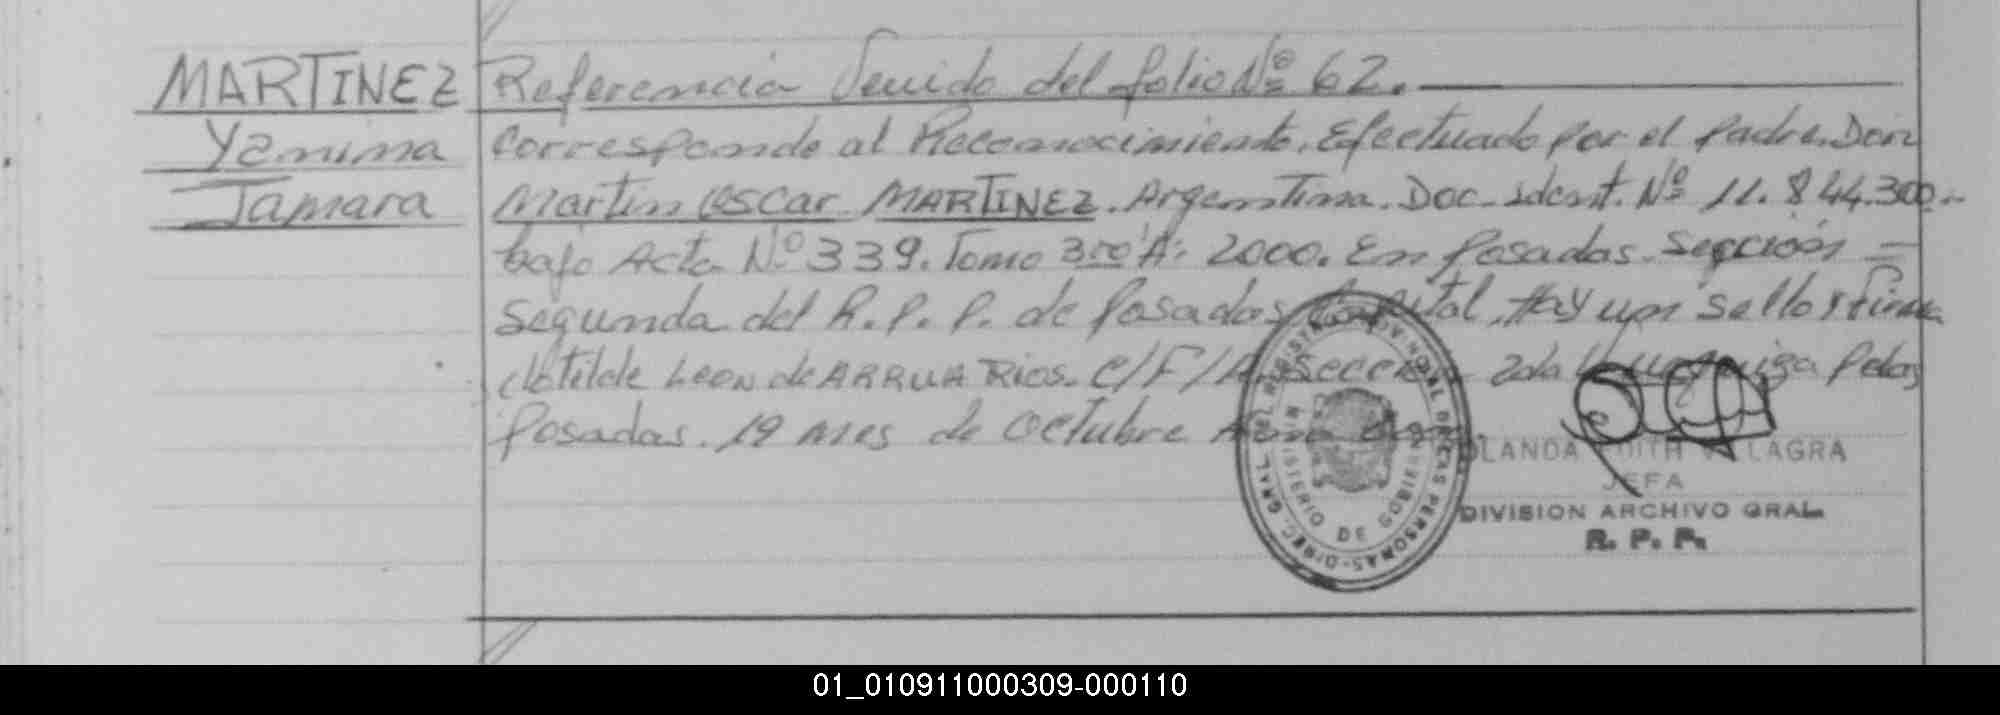 MARTINEZ Referencia Venido del folio Nº 62.
Yanina corresponde al Reconocimiento. Efectuado por el padre. Don
Tamara Martin Oscar MARTINEZ. Argentina. Doc. ident. Nº 11.844.300.-
bajo Acta Nº 339. Tomo 3ro A: 2000. En Posadas. Sección -
Segunda del R.P.P. de Posadas Capital. Hay un sello y firma
Clotilde LEON de ARRUA Rios. C/F/A. Sección 2da
Posadas. 19 mes de octubre
DIREC. GRAL. DEL REGISTRO PROVINCIAL DE LAS PERSONAS
MINISTERIO DE GOBIERNO
YOLANDA EDITH VILLAGRA
JEFA
DIVISION ARCHIVO GRAL.
R. P. P.
01_010911000309-000110